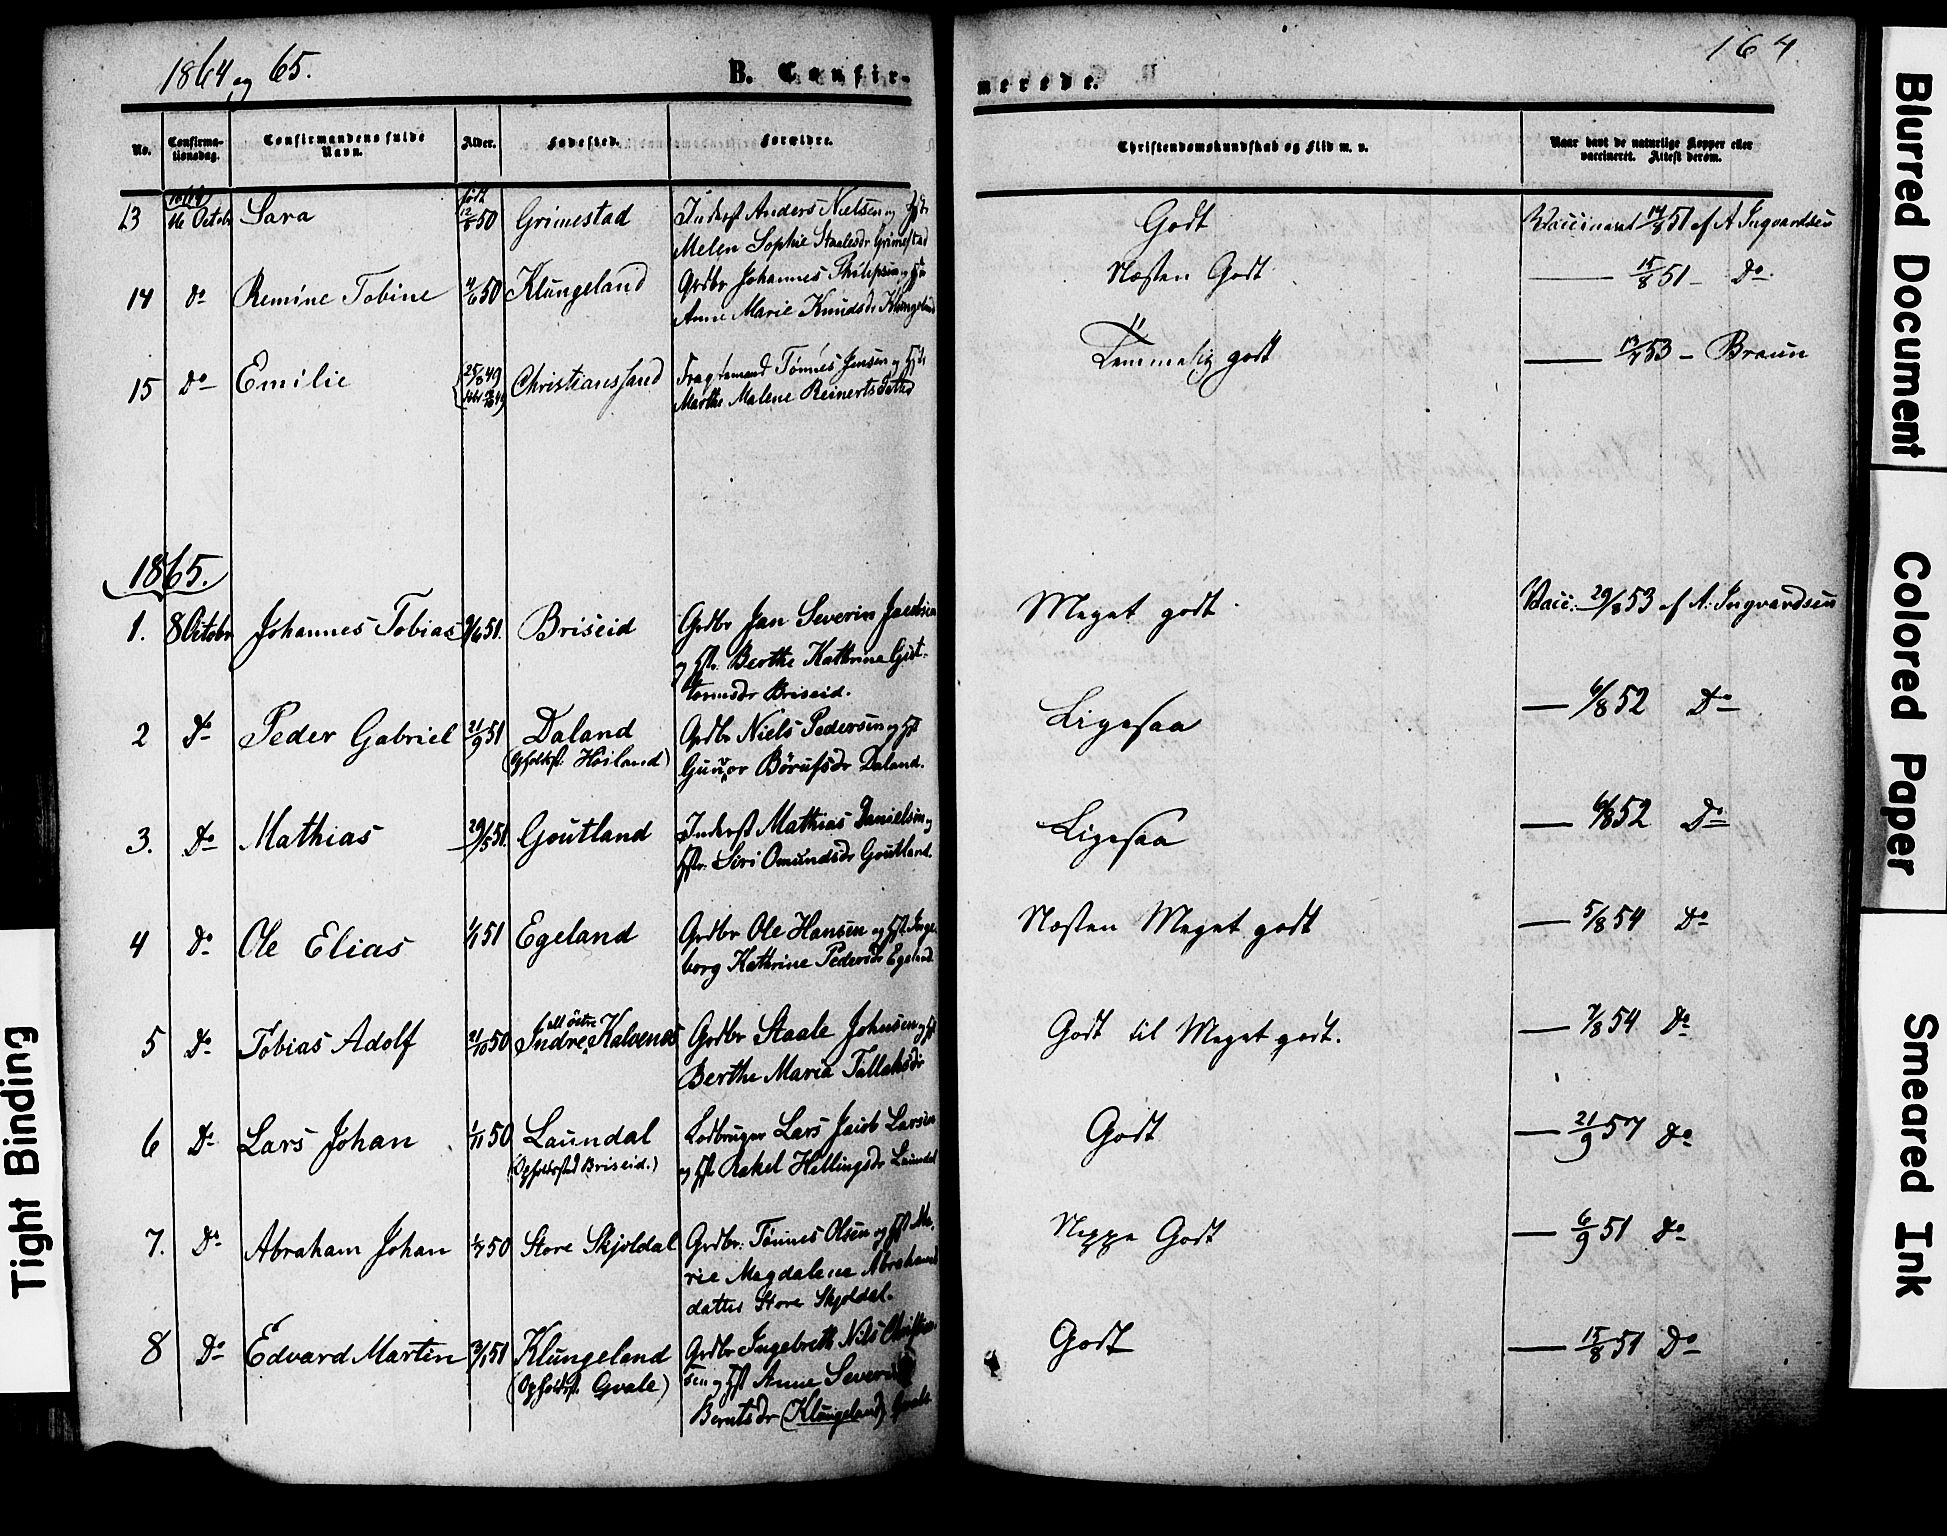 1864 og 65.
B. Confir-
merede.
164
No.
Confirma-
tionsdag.
Confirmandens fulde
Navn.
Alder.
Fødested.
Forældre.
Christendomskundskab og Flid m. v.
Naar havt de naturlige Kopper eller
vaccineret. Attest derom.
(1864)
13 16 Octobr Sara født 12/6 50 Grimestad Inderst Anders Nielsen og
Melen Sophie Staalesdr Grimestad
Godt
Vaccineret 14/8 51 af A Ingvardsen
14 do Remine Tobine 50 Klungeland Grdbr Johannes Philipsen og
Anne Marie Knudsdr Klungeland
Næsten Godt
— 15/8 51 — Do
15 Do Emilie 49 Christianssand Tønnes Jensen og
Marthe Malene Reinertsdatter
Temmelig godt
53 — Braun
1865.
1. 8 Octobr Johannes Tobias 51. Briseid Grdbr Jan Severin Jacobsen
og Hst. Berthe Kathrine Gjert-
Briseid.
Meget godt
Vacc. 29/8 53 af A. Ingvardsen
2 Do Peder Gabriel 21/9 51 Daland Grdbr Niels Pedersen og Hst
(Opholdst. Høiland) Gunvor Børufsdr Daland.
Ligesaa
— 6/8 52 Do
3. Do Mathias 29/5 51. Goutland Inderst Mathias Danielsen og
Hstr. Siri Omundsdr Goutland.
Ligesaa
— 6/8 52 Do
4 Do Ole Elias 51 Egeland Grdbr Ole Hansen og Hst Inge-
borg Kathrine Pedersdr Egeland
Næsten Meget godt
— 5/8 54 Do
5 Do Tobias Adolf 21/10 50 Indre Kalvenes Grdbr Staale Johnsen og Hst
Berthe Maria Tallaksdr
Godt til Meget godt.
— 7/8 54 Do
6 Do Lars Johan 1/11 50 Laundal Lodbruger Lars Jacob Larsen
(Opholdssted Briseid.) og Hst Rakel Hellingsdr Laundal
Godt
— 21/9 57 do
7. Do Abraham Johan 50 Store Skjoldal Grdbr. Tønnes Olsen og Hst Ma-
rie Magdalene Abrahams
datter Store Skjoldal.
Neppe Godt
— 6/9 51 do
8 Do Edvard Martin 51 Klungeland Grdbr Ingebreth Nils Christen-
(Opholdst. Qvale) sen og Hst Anne Severine
Berntsdr (Klungeland) Qvale
Godt
— 15/8 51 Do
Tight Binding
Blurred Document
Colored Paper
Smeared Ink